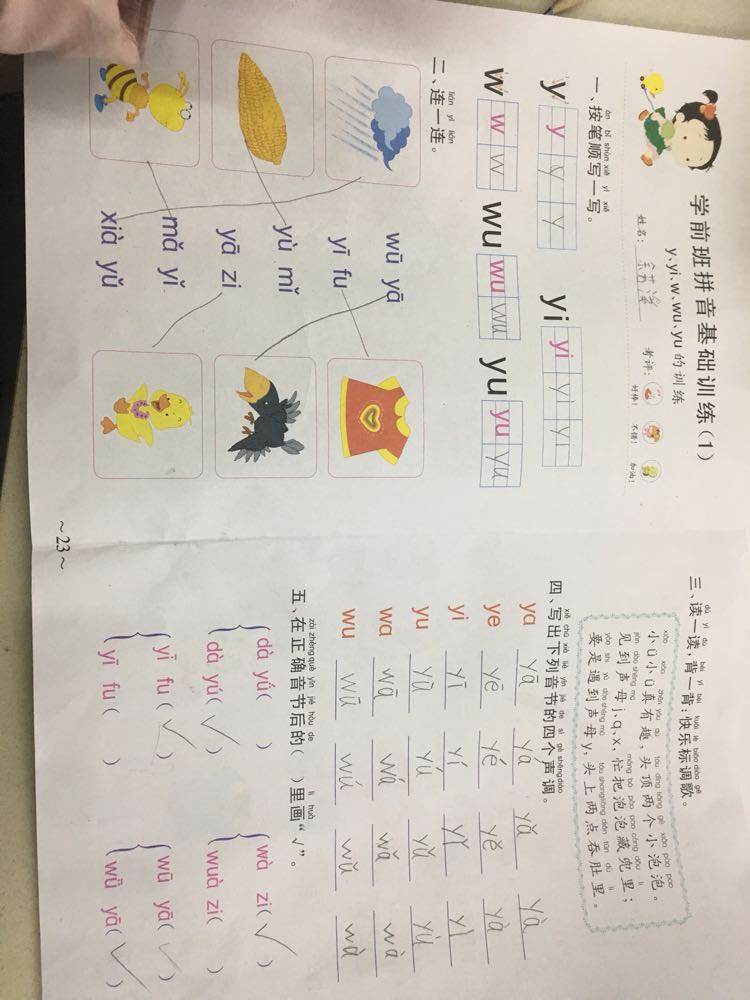 学前班拼音基础训练(1)
y、yi、w、wu、yu 的训练
姓名:
考评: 好棒! 不错! 加油!
àn bǐ shùn xiě yì xiě
一、按笔顺写一写。
y y y y yi yi yi yi
w w w wu wu wu yu yu yu
lián yì lián
二、连一连。
wū yā
yī fu
yù mǐ
yā zi
mǎ yǐ
xià yǔ
~23~
dú yì dú bèi yí bèi kuài lè biāo diào gē
三、读一读,背一背:快乐标调歌。
xiǎo xiǎo zhēn yǒu qù tóu dǐng liǎng gè xiǎo pào pao
小ü小ü真有趣,头顶两个小泡泡。
jiàn dào shēng mǔ máng bǎ pào pao cáng dōu lǐ
见到声母j、q、x,忙把泡泡藏兜里;
yào shi yù dào shēng mǔ tóu shang liǎng diǎn tūn dù lǐ
要是遇到声母y,头上两点吞肚里。
xiě chū xià liè yīn jié de sì gè shēng diào
四、写出下列音节的四个声调。
ya yā yá yǎ yà
ye yē yé yě yà
yi yī yí yǐ yì
yu yū yú yǔ yù
wa wā wá wǎ wà
wu wū wú wǔ wà
zài zhèng què yīn jié hòu de lǐ huà
五、在正确音节后的( )里画“√”。
dà yǘ( ) wà zi(√)
dà yú(√) wuà zi( )
yī fu(√) wū yā(√)
yī fu( ) wǖ yā(√)